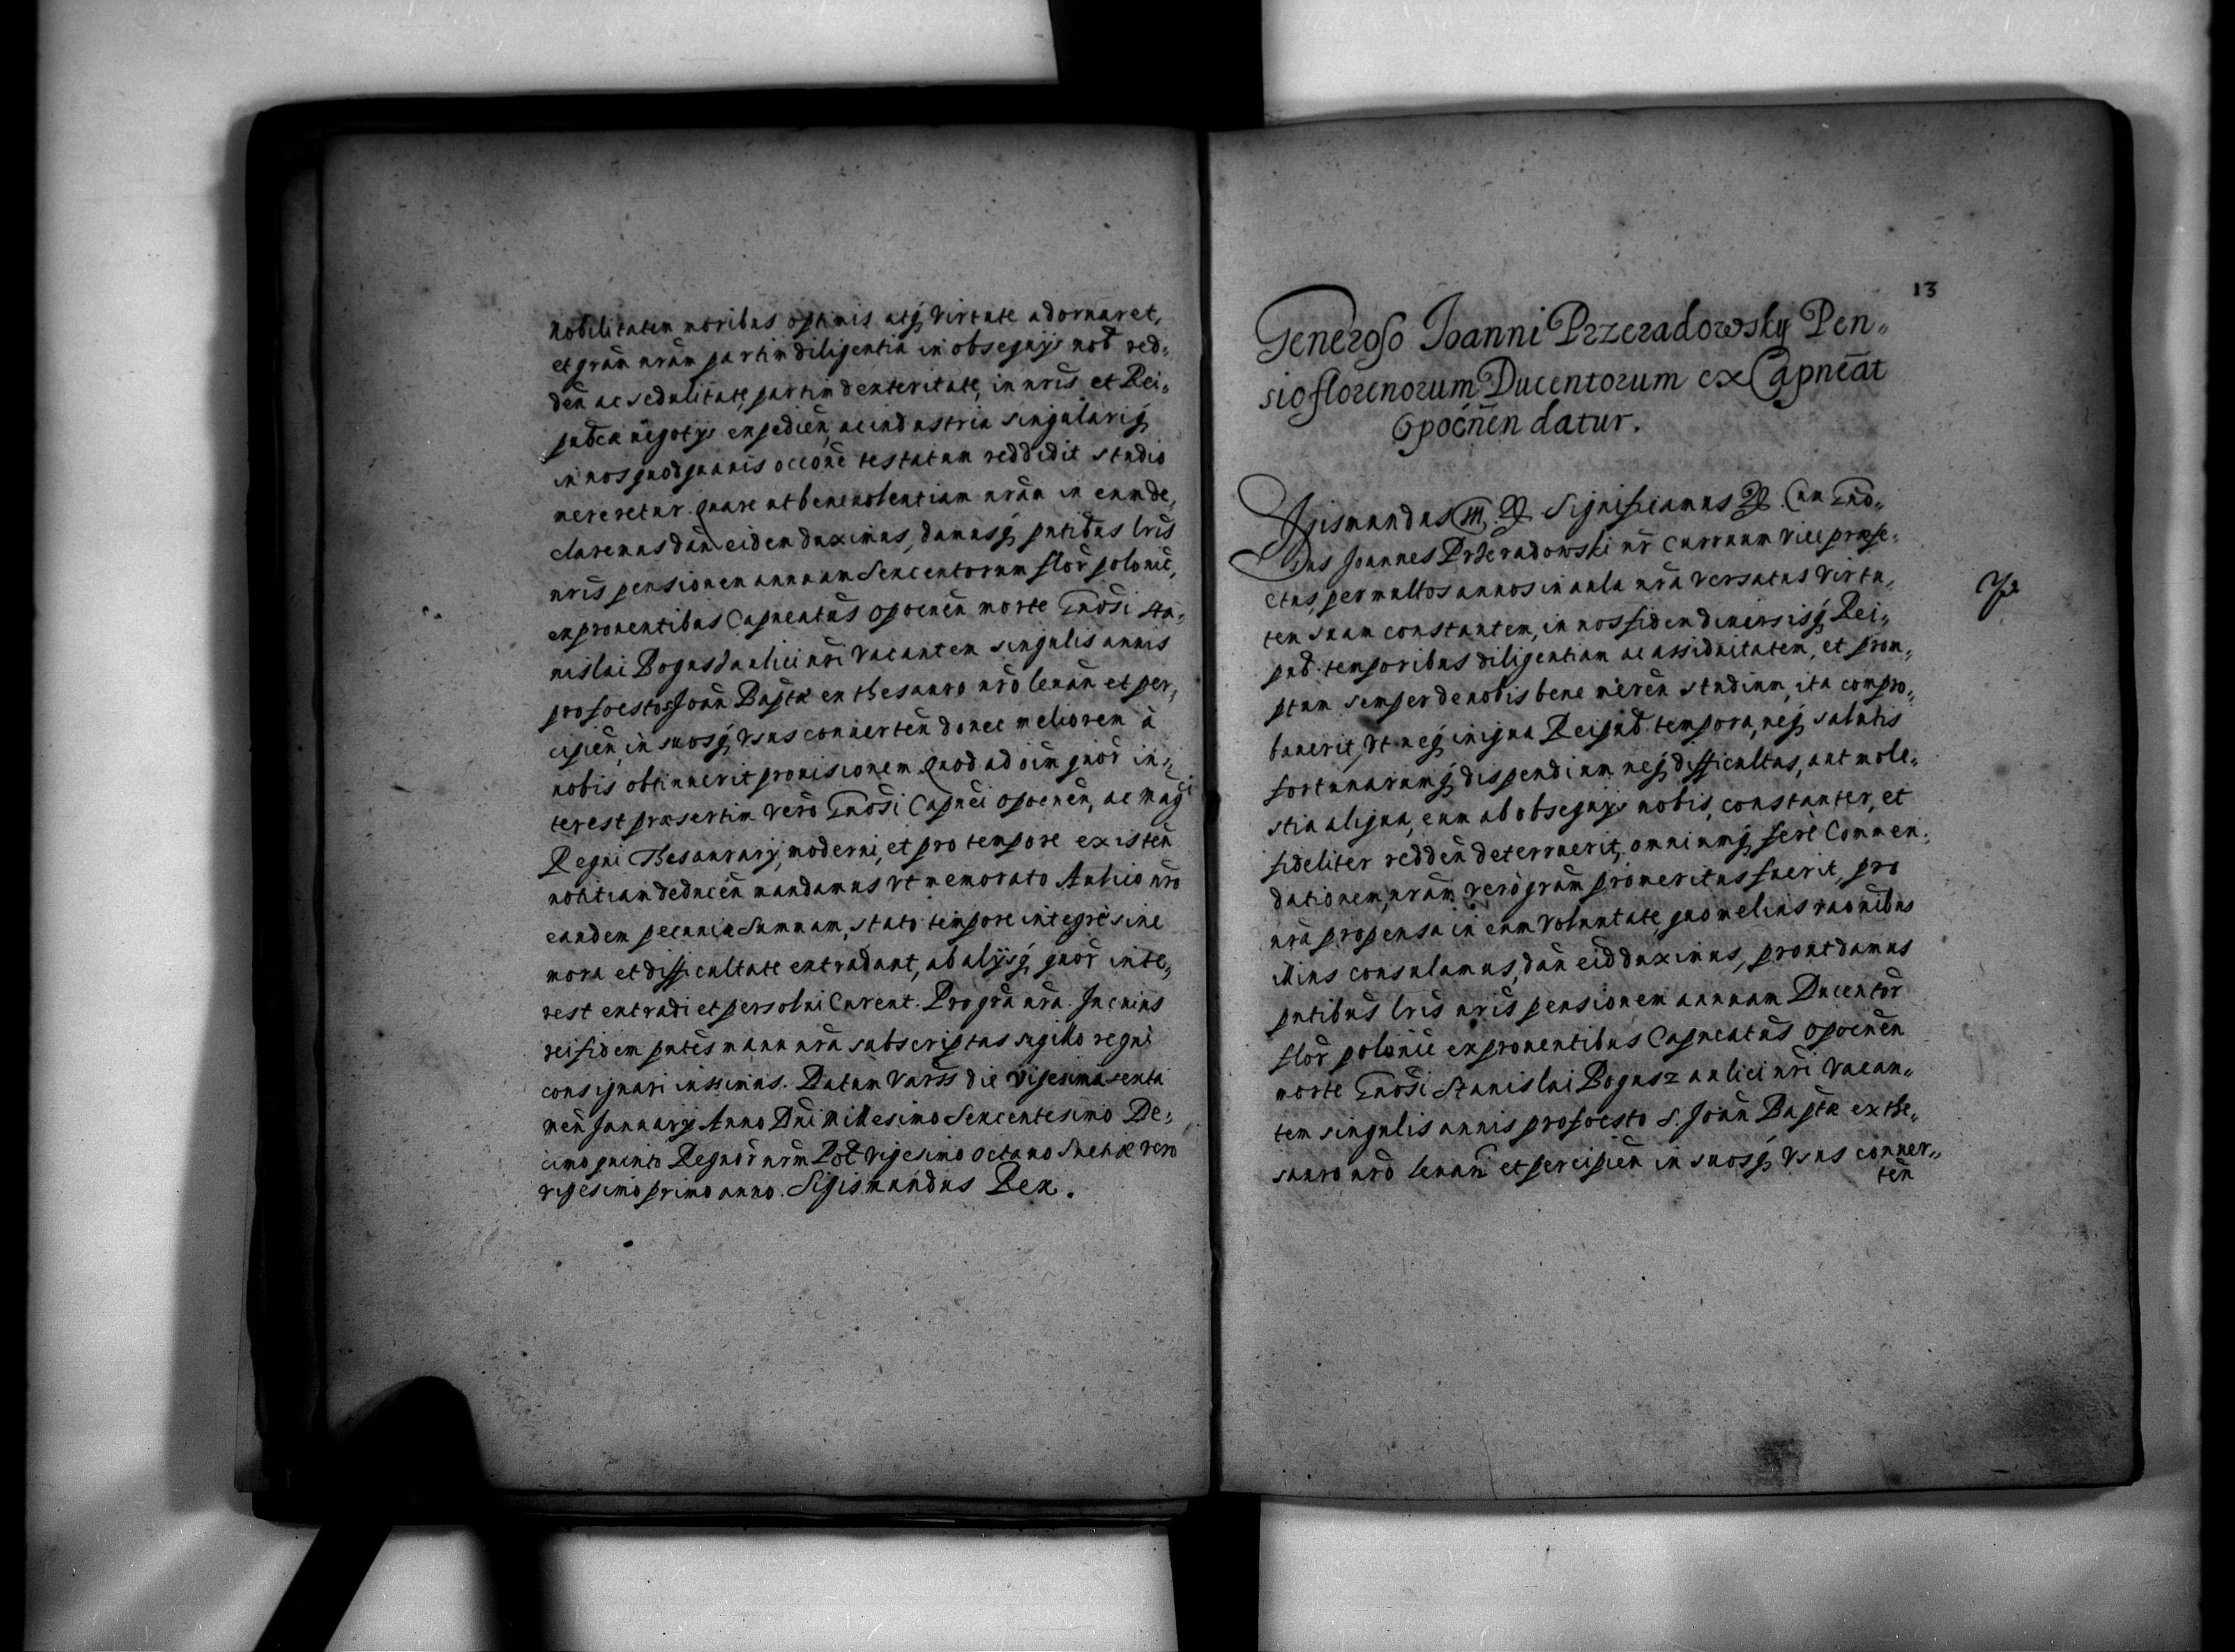 nobilitatem moribus optimis atq̃ virtute adornaret,
et grãm nrãm partim diligentia in obsequijs nob̃ red„
deñ ac sedulitate, partim dexteritate, in nris̃ et Rei„
pub̃cæ negotijs expedieñ, ac industria singulariq̃
in nos quodquamis occoñe testatum reddidit studio
mereretur. Quare ut beneuolentiam nrãm in eum de„
claremus dañ eidem duximus, damusq̃ pñtibus lris̃
nris̃ pensionem annuam Sexcentorum flor̃ polonic̃,
ex prouentibus Capneatus̃ Opocneñ morte Gñosi Sta„
nislai Bogusz aulici nrĩ vacantem singulis annis
pro foesto S Joañ Bap̃tæ ex thesauro nrõ leuañ et per„
cipieñ, in suosq̃ vsus conuerteñ donec meliorem à
nobis obtinuerit prouisionem. Quod ad oim̃ quor̃ in„
terest præsertim vero Gñosi Capnei Opocneñ, ac Mag̃ci
Regni Thesaurarij, moderni, et pro tempore existeñ
notitiam deduceñ mandamus vt memorato Aulico nrõ
eandem pecuniæ Summam, stato tempore integrè sine
mora et difficultate extradant, ab alijsq̃ quor̃ inte„
rest extradi et persolui Curent. Pro grã nrã. In cuius
rei fidem pñtes manu nrã subscriptas sigillo regni
consignari iussimus. Datum Vars̃ die vigesima sexta
meñ January Anno Dñi Millesimo Sexcentesimo De„
cimo quinto Regnor̃ nrm̃ Pol̃ vigesimo octauo Suetiæ vero
vigesimo primo anno. Sigismundus Rex.
13
Generoso Joanni Przeradowsky Pen„
sio florenorum Ducentorum ex Capneat̃
Opocneñ datur.
Sigismundus III. Significamus Cum Gño„
sus Joannes Przeradowski nr̃ Curruum vice præfe„
ctus, per multos annos in aula nrã versatus virtu„
tem suam constantem, in nos fidem diuersisq̃ Rei„
pub̃. temporibus diligentiam ac assiduitatem, et prom„
ptum semper de nobis bene mereñ studium, ita compro„
bauerit, vt neq̃ iniqua Reipub̃ tempora, neq̃ salutis
fortunarumq̃ dispendium neq̃ difficultas, aut mole„
stia aliqua, eum ab obsequijs nobis, constanter, et
fideliter reddeñ deterruerit, omniumq̃ ferè Commen„
dationem, nrãm verò grãm promeritus fuerit, pro
nrã propensa in eum voluntate, quo melius raõnibus
illius consulamus, dañ eid̃ duximus, prout damus
pñtibus lris̃ nris̃ pensionem annuam Ducentor̃
flor̃ polonic̃ ex prouentibus Capneatus̃ Opocneñ
morte Gñosi Stanislai Bogusz aulici nrĩ vacan„
tem singulis annis pro foesto S. Joañ Bap̃tæ ex the„
sauro nrõ leuañ et percipieñ in suosq̃ vsus conuer„
teñ